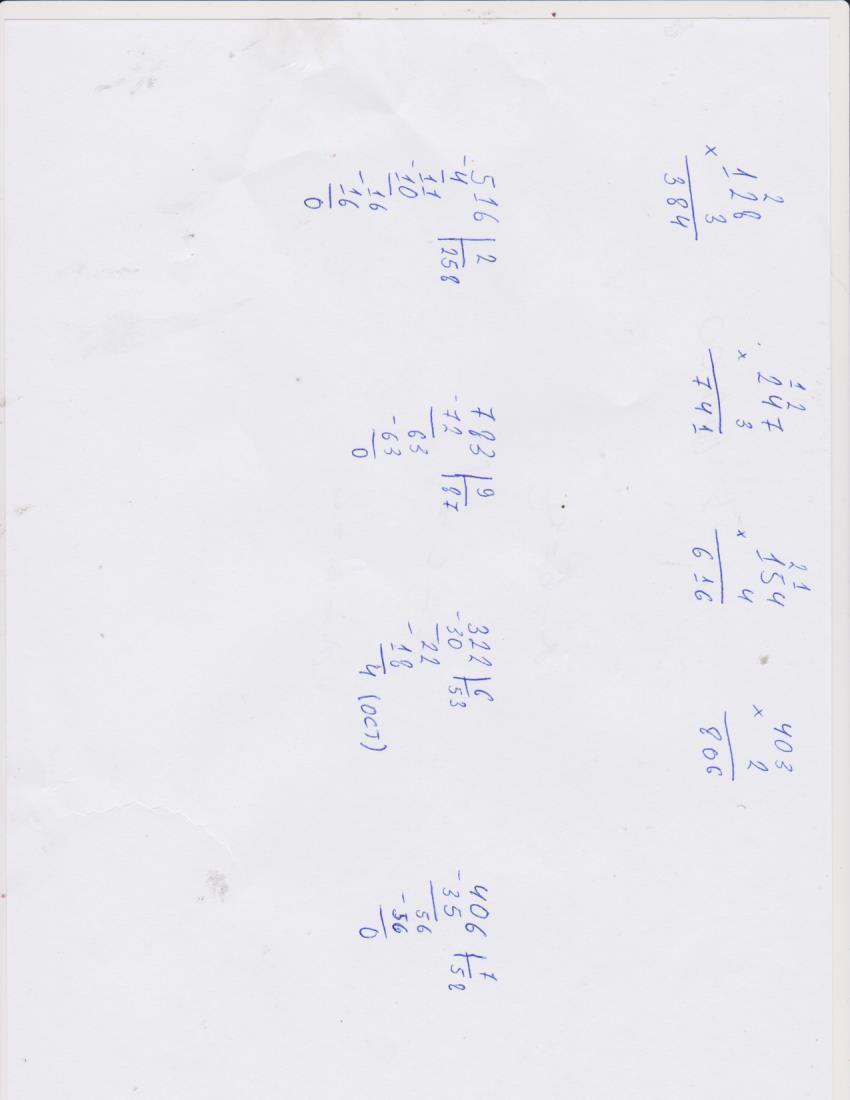 2
× 128
3
384
1 2
× 247
3
741
2 1
× 154
4
616
× 403
2
806
- 516 | 2
4 | 258
- 11
10
- 16
16
0
- 783 | 9
72 | 87
- 63
63
0
- 322 | 6
30 | 53
- 22
18
4 (ОСТ)
- 406 | 7
35 | 58
- 56
56
0